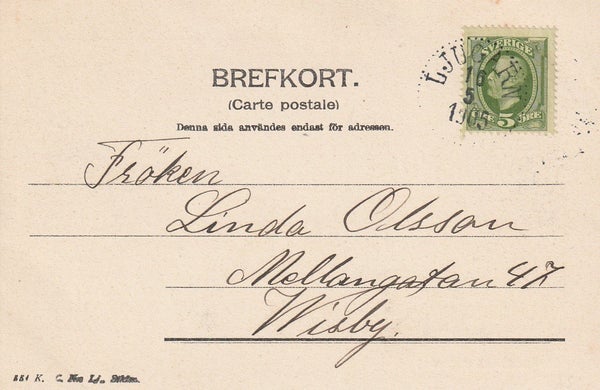 BREFKORT.
(Carte postale)
Denna sida användes endast för adressen.
SVERIGE
5 ÖRE
LJUGARN
16
5
1905
Fröken
Linda Olsson
Mellangatan 47
Wisby.